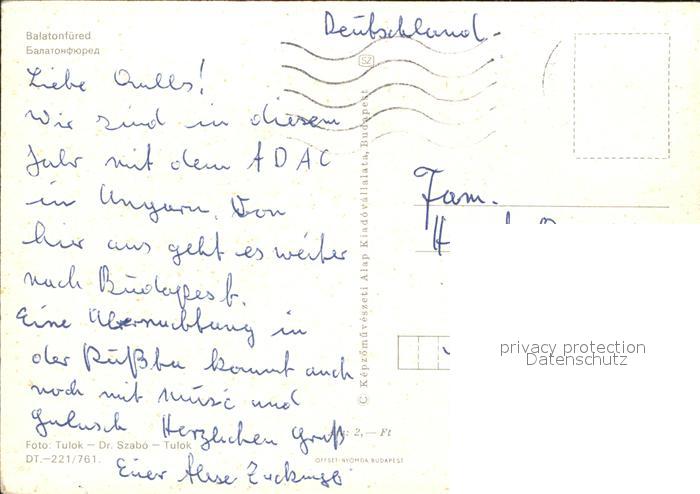 Balatonfüred
Балатонфюред
Deutschland.
SZ
Liebe
Wir sind in diesem
Jahr mit dem ADAC
in Ungarn. Von
hier aus geht es weiter
nach Budapest.
Eine Übernachtung in
der Pußta kommt auch
noch mit Musič und
Gulasch Herzlichen Gruß
Euer
Foto: Tulok — Dr. Szabó — Tulok
DT.—221/761.
© Képzőművészeti Alap Kiadóvállalata, Budapest
Ára: 2,— Ft
OFFSET-NYOMDA BUDAPEST
Fam.
privacy protection
Datenschutz